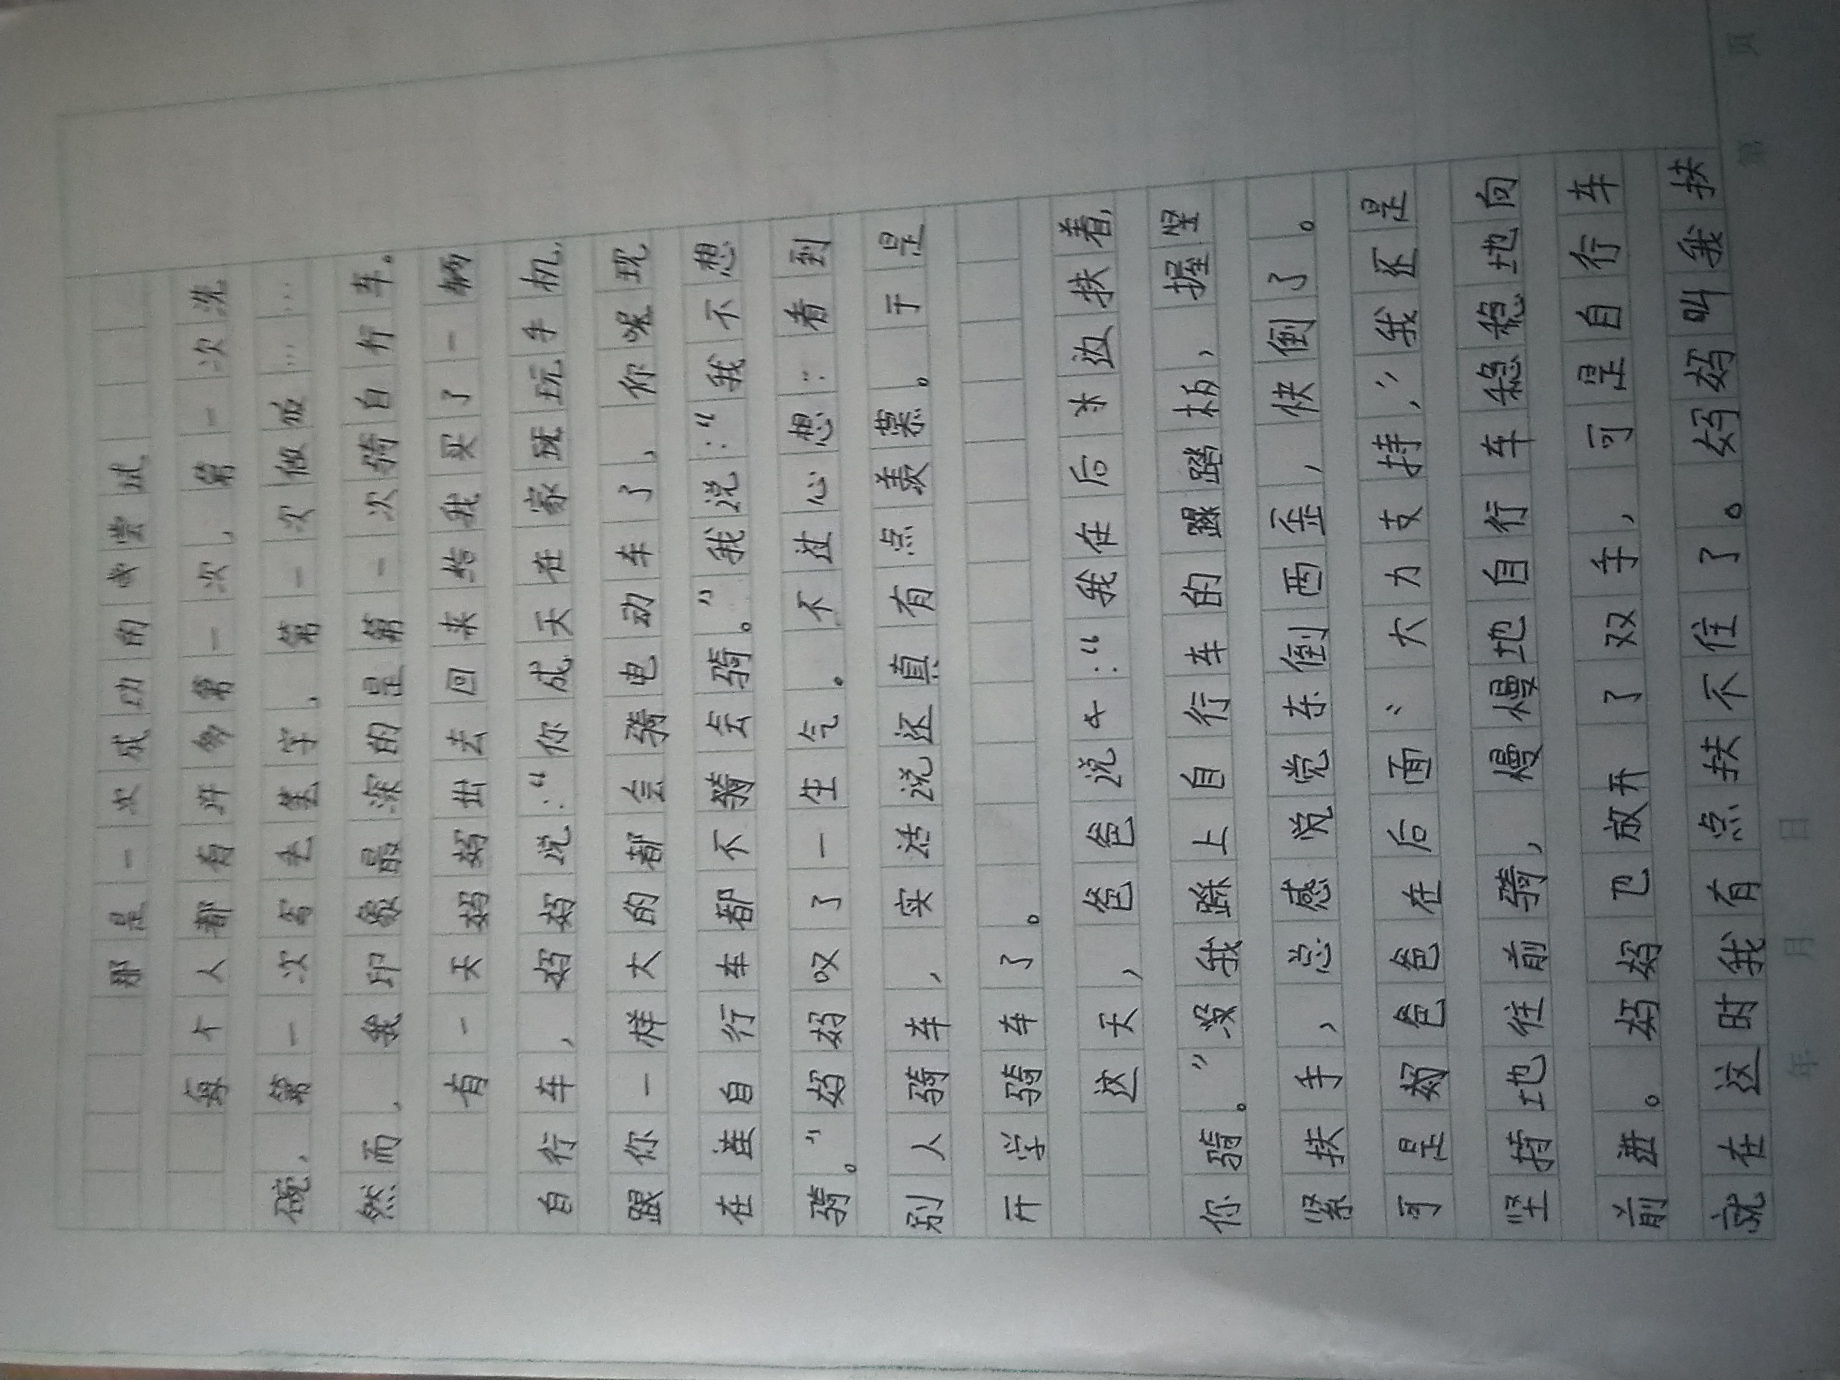 那是一次成功的尝试
每个人都有许多第一次，第一次洗
碗，第一次写毛笔字，第一次做饭……
然而，我印象最深的是第一次骑自行车。
有一天妈妈出去回来给我买了一辆
自行车，妈妈说：“你成天在家玩手机，
跟你一样大的都会骑电动车了，你呢现
在连自行车都不会骑。”我说：“我不想
骑。”妈妈叹了一生气。不过心想：看到
别人骑车，实话说还真有点羡慕。于是
开学骑车了。
这天，爸爸说：“我在后边扶着，
你骑。”没我踩上自行车的踏板，握坚
紧扶手，总感觉东倒西歪，快倒了。
可是妈爸爸在后面“大力支持，”我还是
坚持地往前骑，慢慢地自行车稳稳地向
前进。妈妈也放开了双手，可是自行车
就在这时我有点扶不住了。妈妈叫我扶
第 页
年 月 日